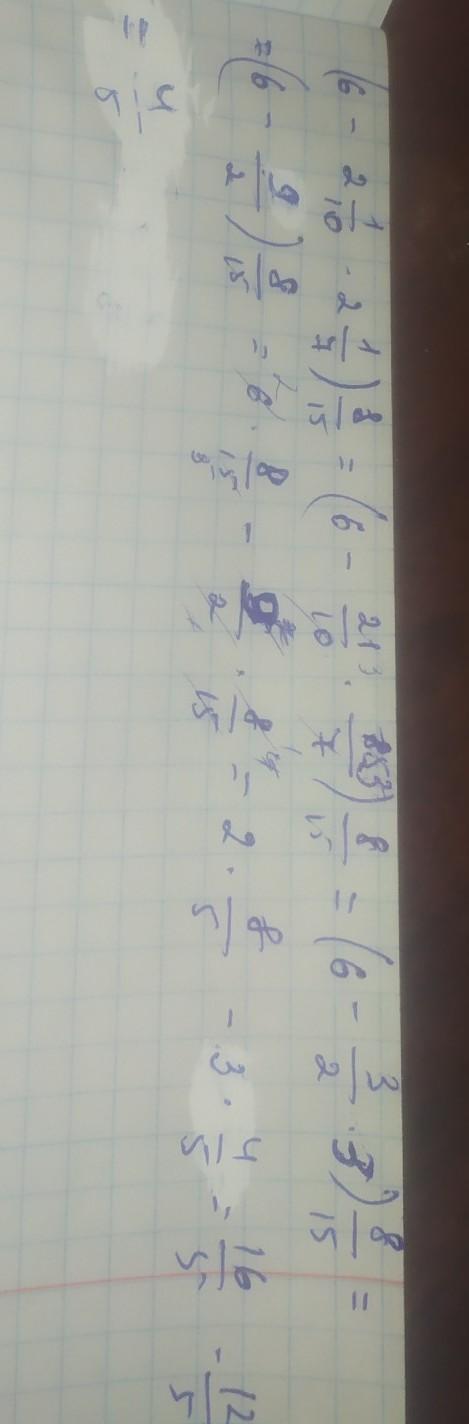 (6 - 2 1/10 · 2 1/7) 8/15 = (6 - 21/10 · 15/7) 8/15 = (6 - 3/2 · 3) 8/15 =
= (6 - 9/2) 8/15 = 6 · 8/15 - 9/2 · 8/15 = 2 · 8/5 - 3 · 4/5 = 16/5 - 12/5
= 4/5